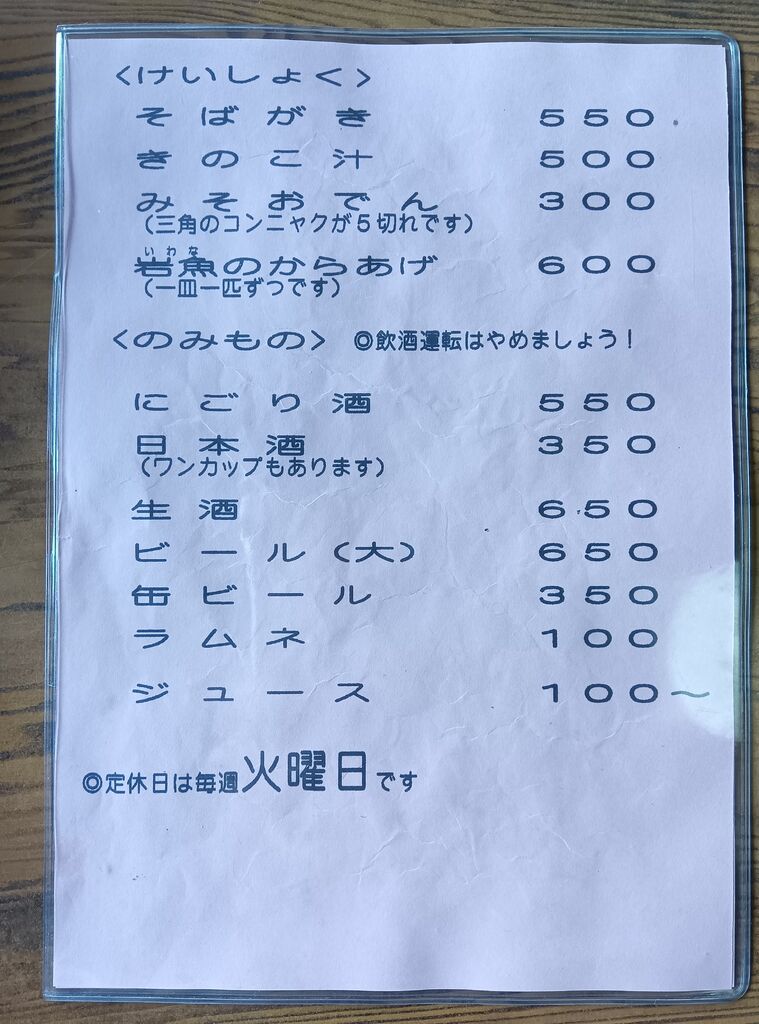 <けいしょく>
そばがき 550
きのこ汁 500
みそおでん 300
(三角のコンニャクが5切れです)
いわな
岩魚のからあげ 600
(一皿一匹ずつです)
<のみもの> ◎飲酒運転はやめましょう!
にごり酒 550
日本酒 350
(ワンカップもあります)
生酒 650
ビール(大) 650
缶ビール 350
ラムネ 100
ジュース 100~
◎定休日は毎週火曜日です